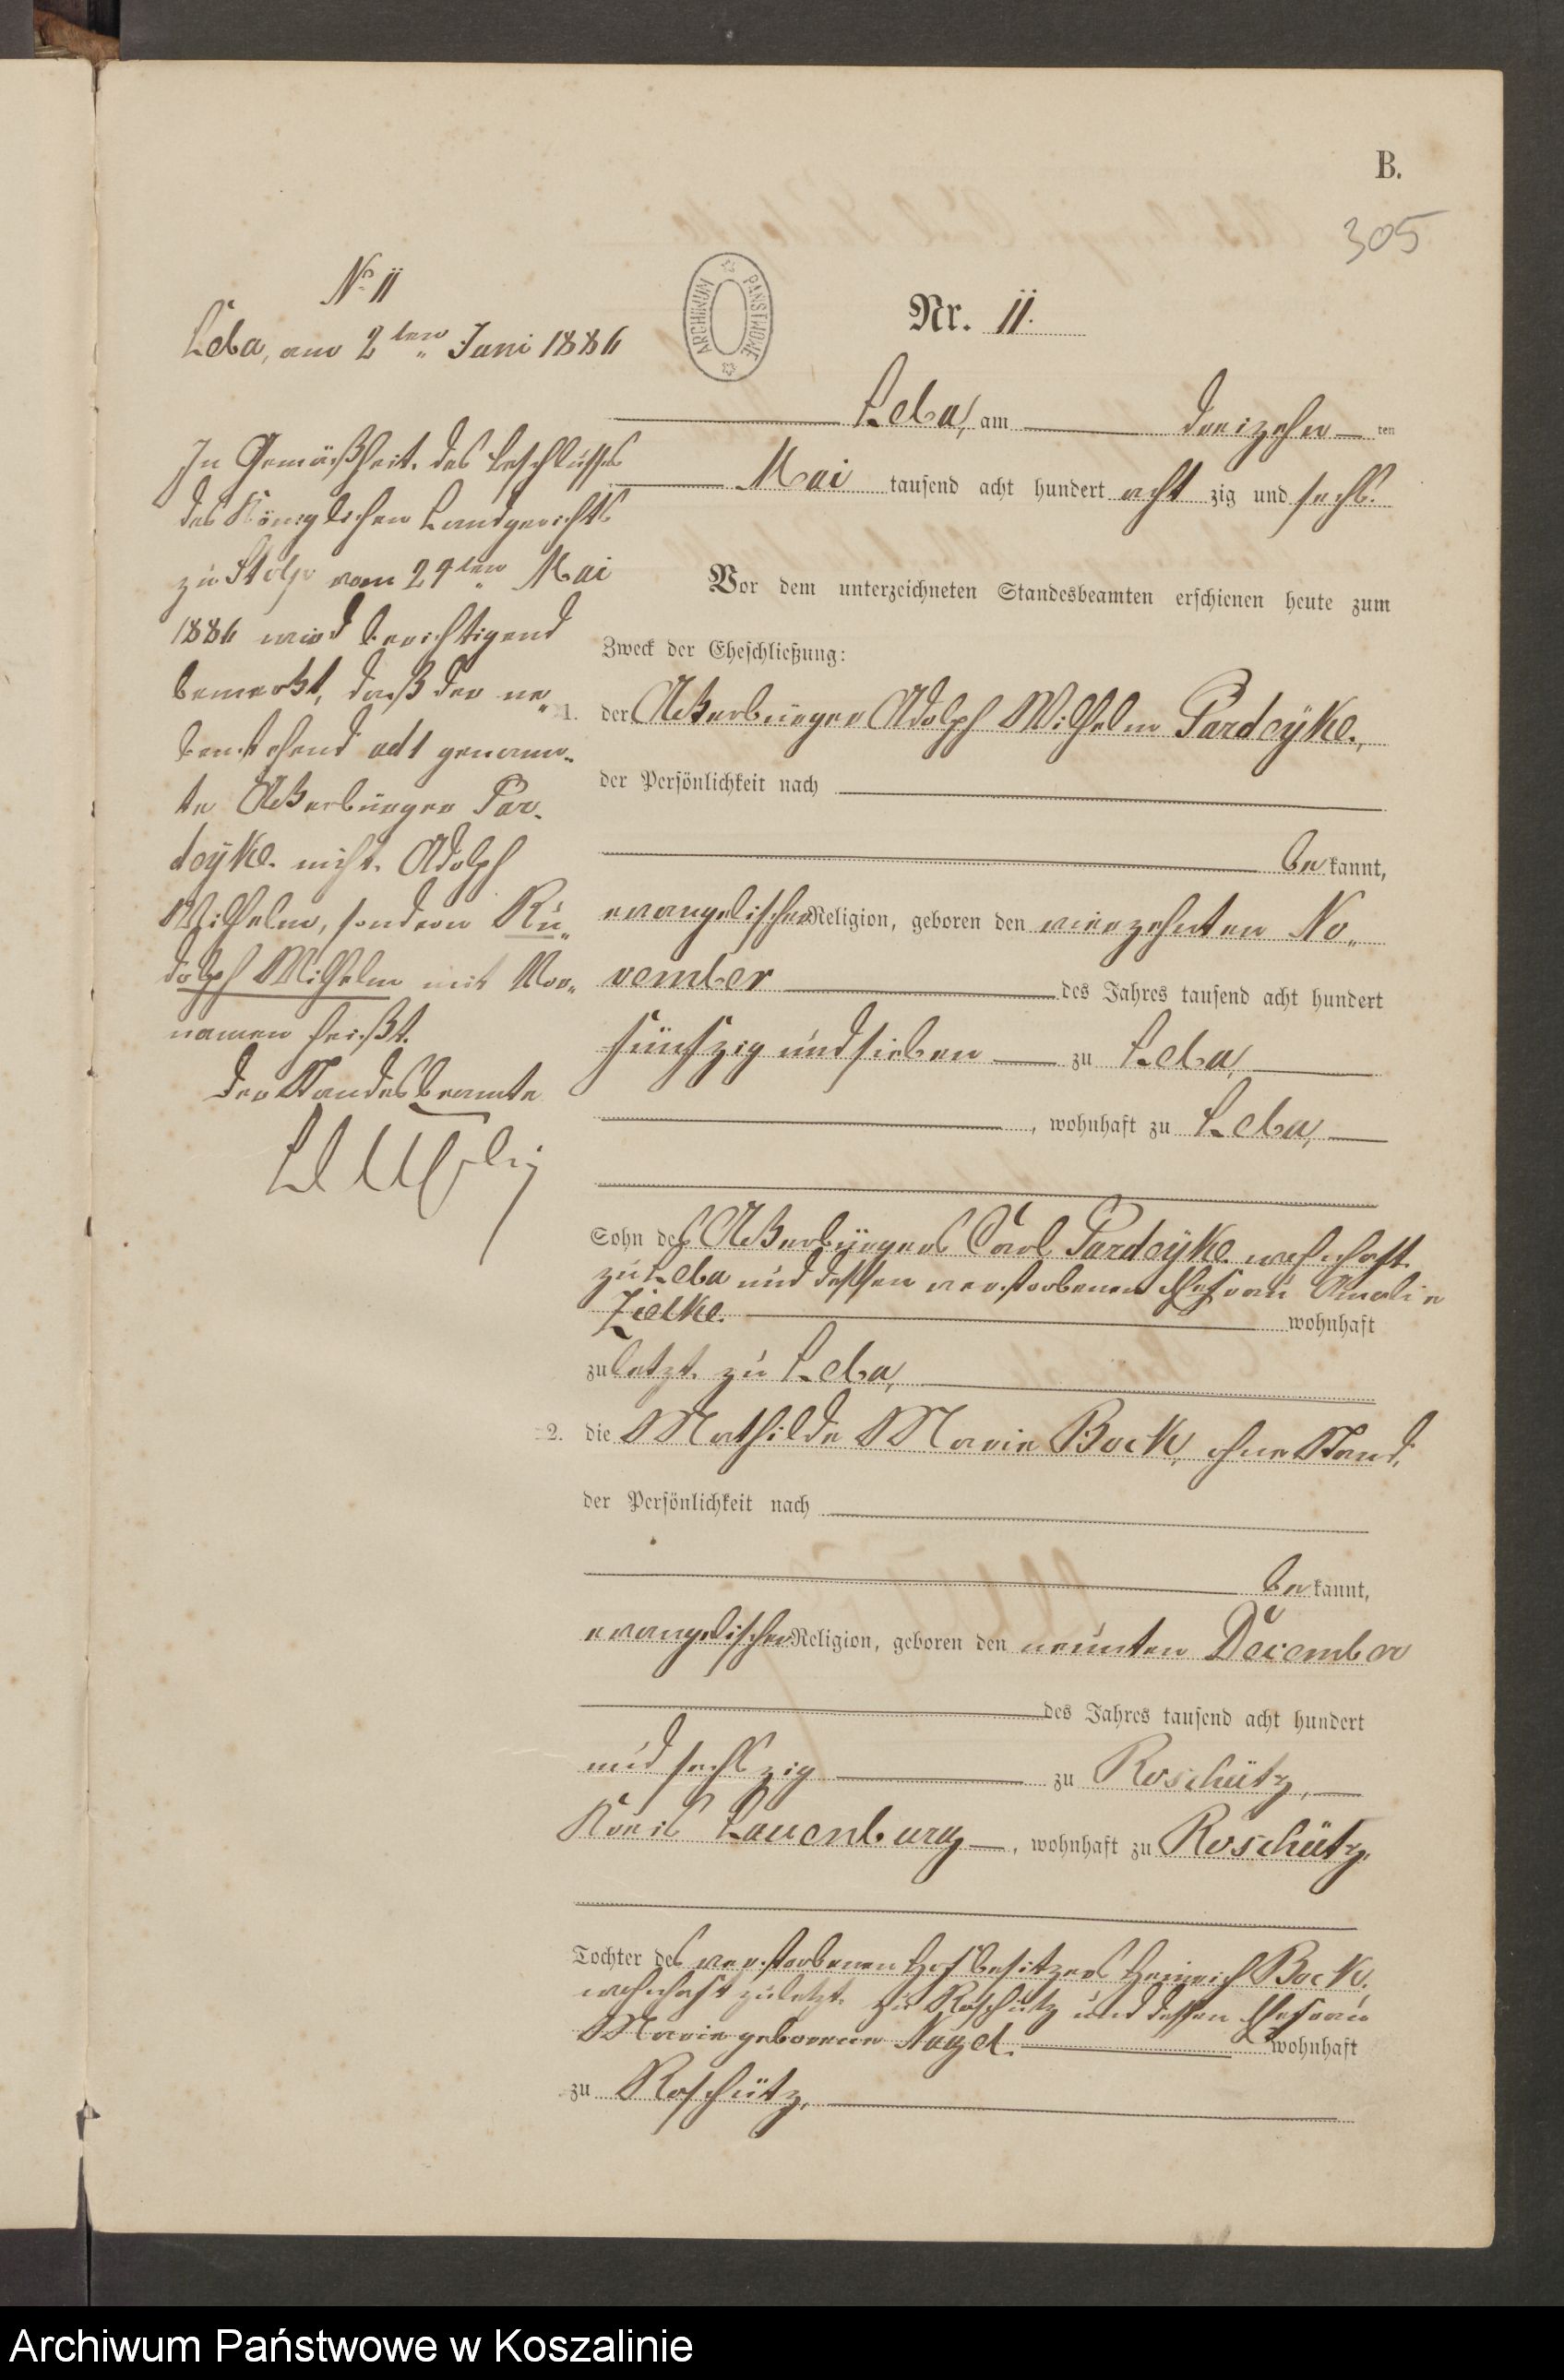 B.
305
No 11
Leba, am 2ten Juni 1886
In Gemäßheit des Beschlusses
des Königlichen Landgerichts
zu Stolp vom 24ten Mai
1886 wird berichtigend
bemerkt, daß der ne„
benstehend ad 1 genann„
te Ackerbürger Par„
deÿke nicht Adolph
Wilhelm, sondern Ru„
dolph Wilhelm mit Vor„
namen heißt.
Der Standesbeamte
ARCHIWUM PAŃSTWOWE
Nr. 11.
Leba, am dreizehn ten
Mai tausend acht hundert acht zig und sechs.
Vor dem unterzeichneten Standesbeamten erschienen heute zum
Zweck der Eheschließung:
1. der Ackerbürger Adolph Wilhelm Pardeÿke,
der Persönlichkeit nach
be kannt,
evangelischer Religion, geboren den vierzehnten No„
vember des Jahres tausend acht hundert
fünfzig und sieben zu Leba,
, wohnhaft zu Leba,
Sohn des Ackerbürgers Carl Pardeÿke wohnhaft
zu Leba und dessen verstorbenen Ehefrau Amalie
Zielke. wohnhaft
zuletzt zu Leba,
2. die Mathilde Marie Bock, ohne Stand,
der Persönlichkeit nach
be kannt,
evangelischer Religion, geboren den neunten December
des Jahres tausend acht hundert
und sechszig zu Roschütz,
Kreis Lauenburg, wohnhaft zu Roschütz,
Tochter des verstorbenen Hofbesitzers Heinrich Bock,
wohnhaft zuletzt zu Roschütz und dessen Ehefrau
Marie geborene Nagel. wohnhaft
zu Roschütz,
Archiwum Państwowe w Koszalinie